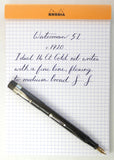 RHODIA
Waterman 51
c 1910
Ideal 14 Ct Gold nib, writes
with a fine line, flexing
to medium broad. f f